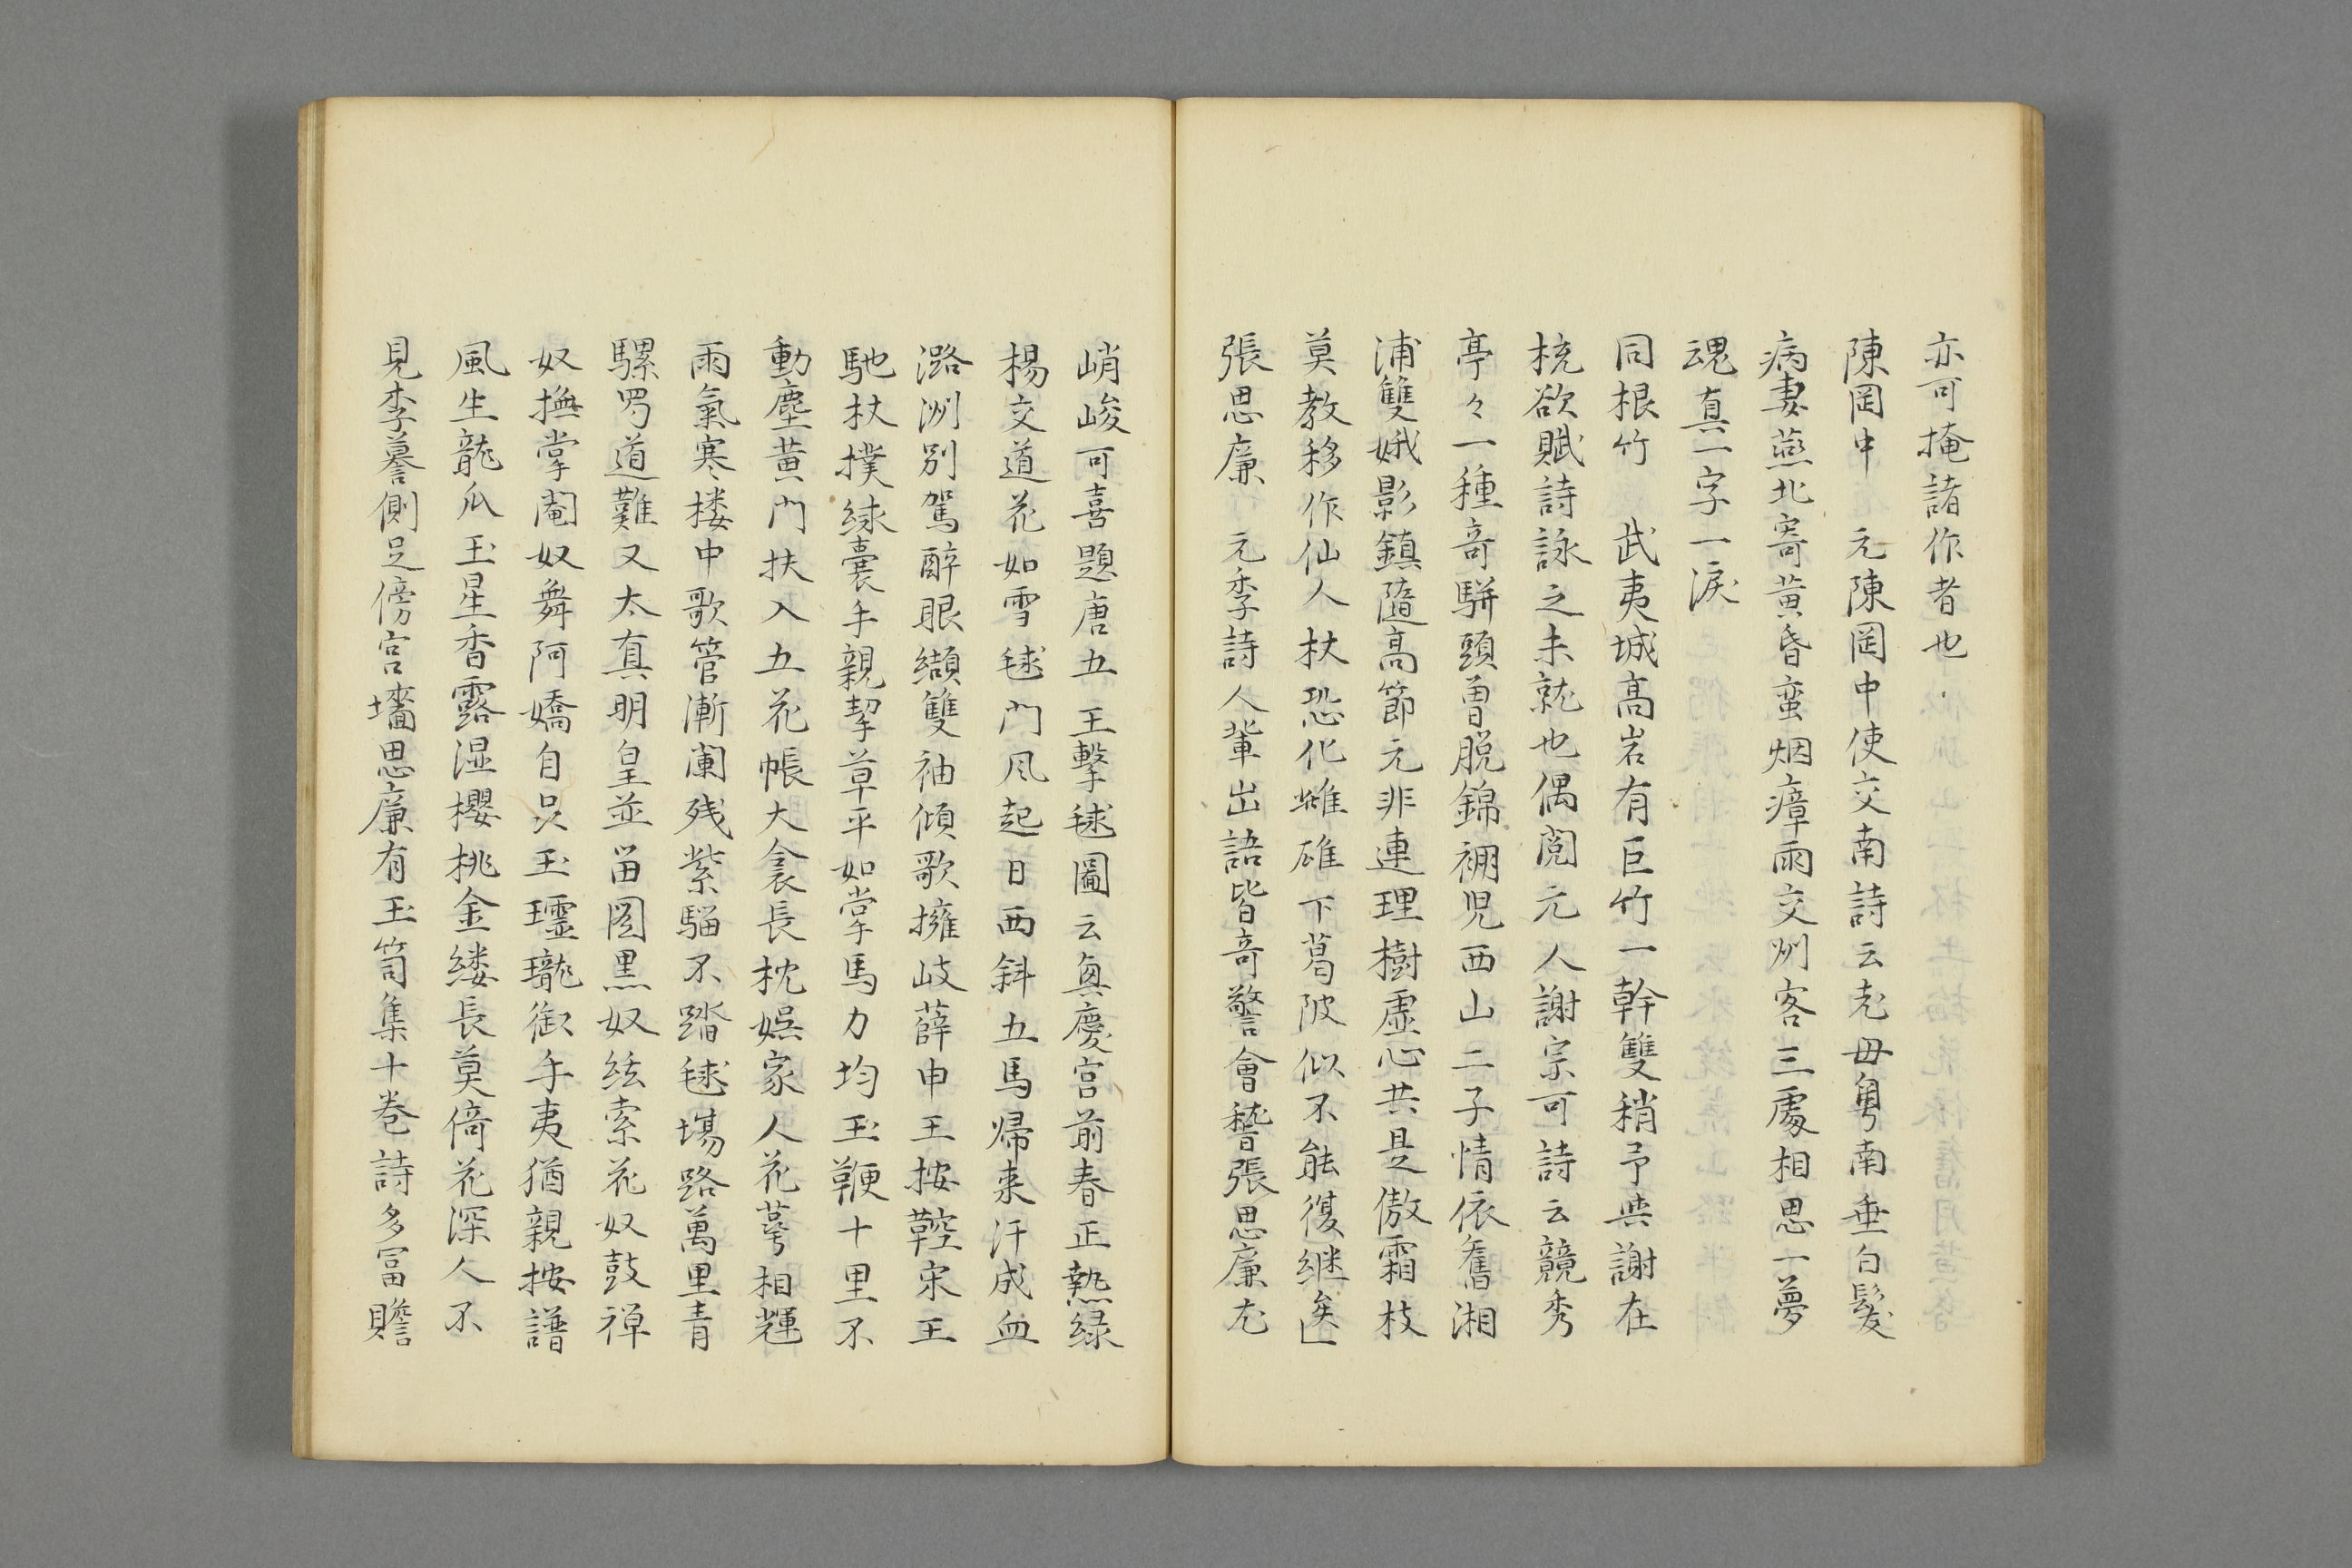 亦可掩諸作者也
陳岡中　元陳岡中使交南詩云老母粤南垂白髮
病妻燕北寄黄昏蛮烟瘴雨交州客三處相思一夢
魂真一字一淚
同根竹　武夷城高岩有巨竹一幹雙稍予典謝在
梳欲賦詩詠之未就也偶閲元人謝宗可詩云競秀
亭々一種奇駢頭曽脱錦褓児西山二子情依舊湘
浦雙娥影鎮隨高節元非連理樹虚心共是傲霜枝
莫教移作仙人杖恐化雌雄下葛陂似不能復継矣
張思廉　元季詩人輩出語皆奇警會稽張思廉尤
峭峻可喜題唐五王擊毬圖云興慶宫前春正熱緑
楊交道花如雪毬門風起日西斜五馬帰来汗成血
潞洲别駕醉眼纈雙袖傾歌擁岐薛申王按鞚宋王
馳杖撲緑囊手親挈草平如掌馬力均玉鞭十里不
動塵黄門扶入五花帳大衾長枕娯家人花萼相輝
雨氣寒楼中歌管漸闌残紫騮不踏毬塲路萬里青
騾蜀道難又太真明皇並笛圖黒奴絃索花奴鼓禅
奴撫掌閹奴舞阿嬌自㕥玉瓏璁御手夷猶親按譜
風生龍爪玉星香露湿櫻桃金縷長莫倚花深人不
見李謩側足傍宫墻思廉有玉笥集十卷詩多冨贍